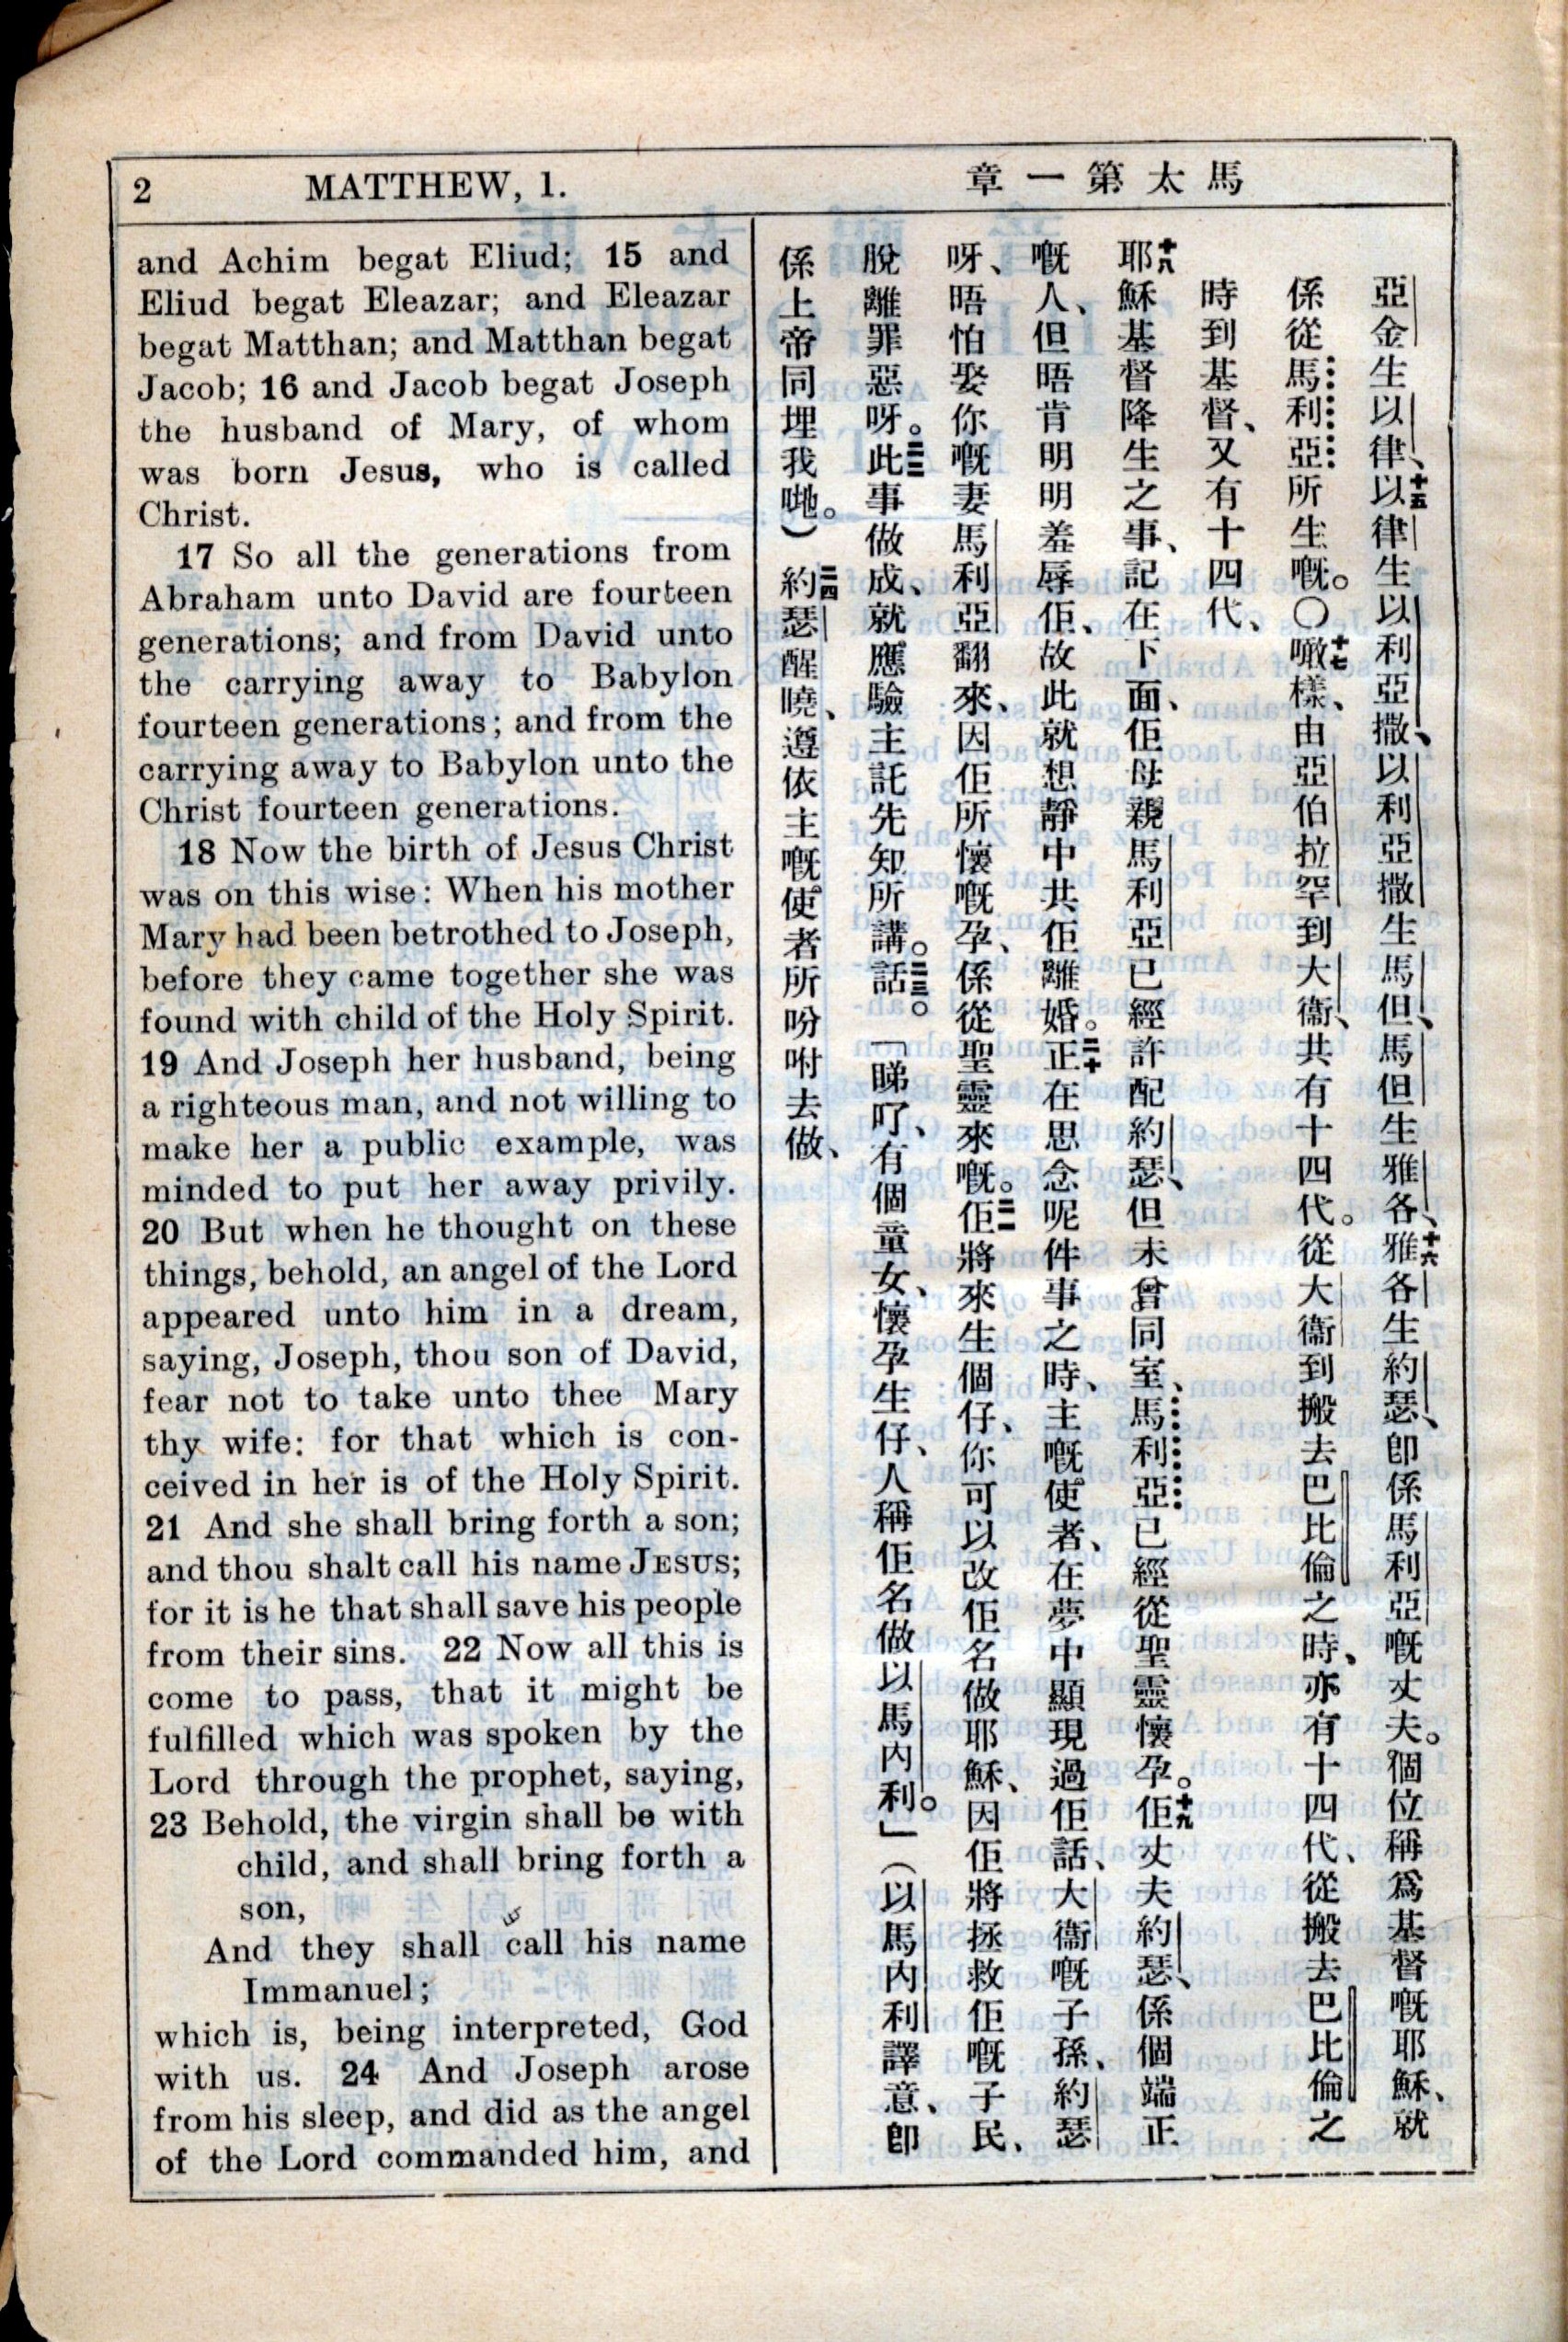 2 MATTHEW, 1.
馬太第一章
and Achim begat Eliud; 15 and
Eliud begat Eleazar; and Eleazar
begat Matthan; and Matthan begat
Jacob; 16 and Jacob begat Joseph
the husband of Mary, of whom
was born Jesus, who is called
Christ.
17 So all the generations from
Abraham unto David are fourteen
generations; and from David unto
the carrying away to Babylon
fourteen generations; and from the
carrying away to Babylon unto the
Christ fourteen generations.
18 Now the birth of Jesus Christ
was on this wise: When his mother
Mary had been betrothed to Joseph,
before they came together she was
found with child of the Holy Spirit.
19 And Joseph her husband, being
a righteous man, and not willing to
make her a public example, was
minded to put her away privily.
20 But when he thought on these
things, behold, an angel of the Lord
appeared unto him in a dream,
saying, Joseph, thou son of David,
fear not to take unto thee Mary
thy wife: for that which is con-
ceived in her is of the Holy Spirit.
21 And she shall bring forth a son;
and thou shalt call his name JESUS;
for it is he that shall save his people
from their sins. 22 Now all this is
come to pass, that it might be
fulfilled which was spoken by the
Lord through the prophet, saying,
23 Behold, the virgin shall be with
child, and shall bring forth a
son,
And they shall call his name
Immanuel;
which is, being interpreted, God
with us. 24 And Joseph arose
from his sleep, and did as the angel
of the Lord commanded him, and
亞金生以律、十五以律生以利亞撒、以利亞撒生馬但、馬但生雅各、十六雅各生約瑟、卽係馬利亞嘅丈夫。個位稱爲基督嘅耶穌、就
係從馬利亞所生嘅。〇十七噉樣、由亞伯拉罕到大衞、共有十四代。從大衞到搬去巴比倫之時、亦有十四代、從搬去巴比倫之
時到基督、又有十四代、
十八耶穌基督降生之事、記在下面、佢母親馬利亞已經許配約瑟、但未曾同室、馬利亞已經從聖靈懷孕。十九佢丈夫約瑟、係個端正
嘅人、但唔肯明明羞辱佢、故此就想靜中共佢離婚。二十正在思念呢件事之時、主嘅使者、在夢中顯現過佢話、大衞嘅子孫、約瑟
呀、唔怕娶你嘅妻馬利亞翻來、因佢所懷嘅孕、係從聖靈來嘅。二一佢將來生個仔、你可以改佢名做耶穌、因佢將拯救佢嘅子民、
脫離罪惡呀。二二此事做成、就應驗主託先知所講。二三話。「睇吖、有個童女、懷孕生仔、人稱佢名做以馬內利。」（以馬內利譯意、卽
係上帝同埋我哋。）二四約瑟醒曉、遵依主嘅使者所吩咐去做、